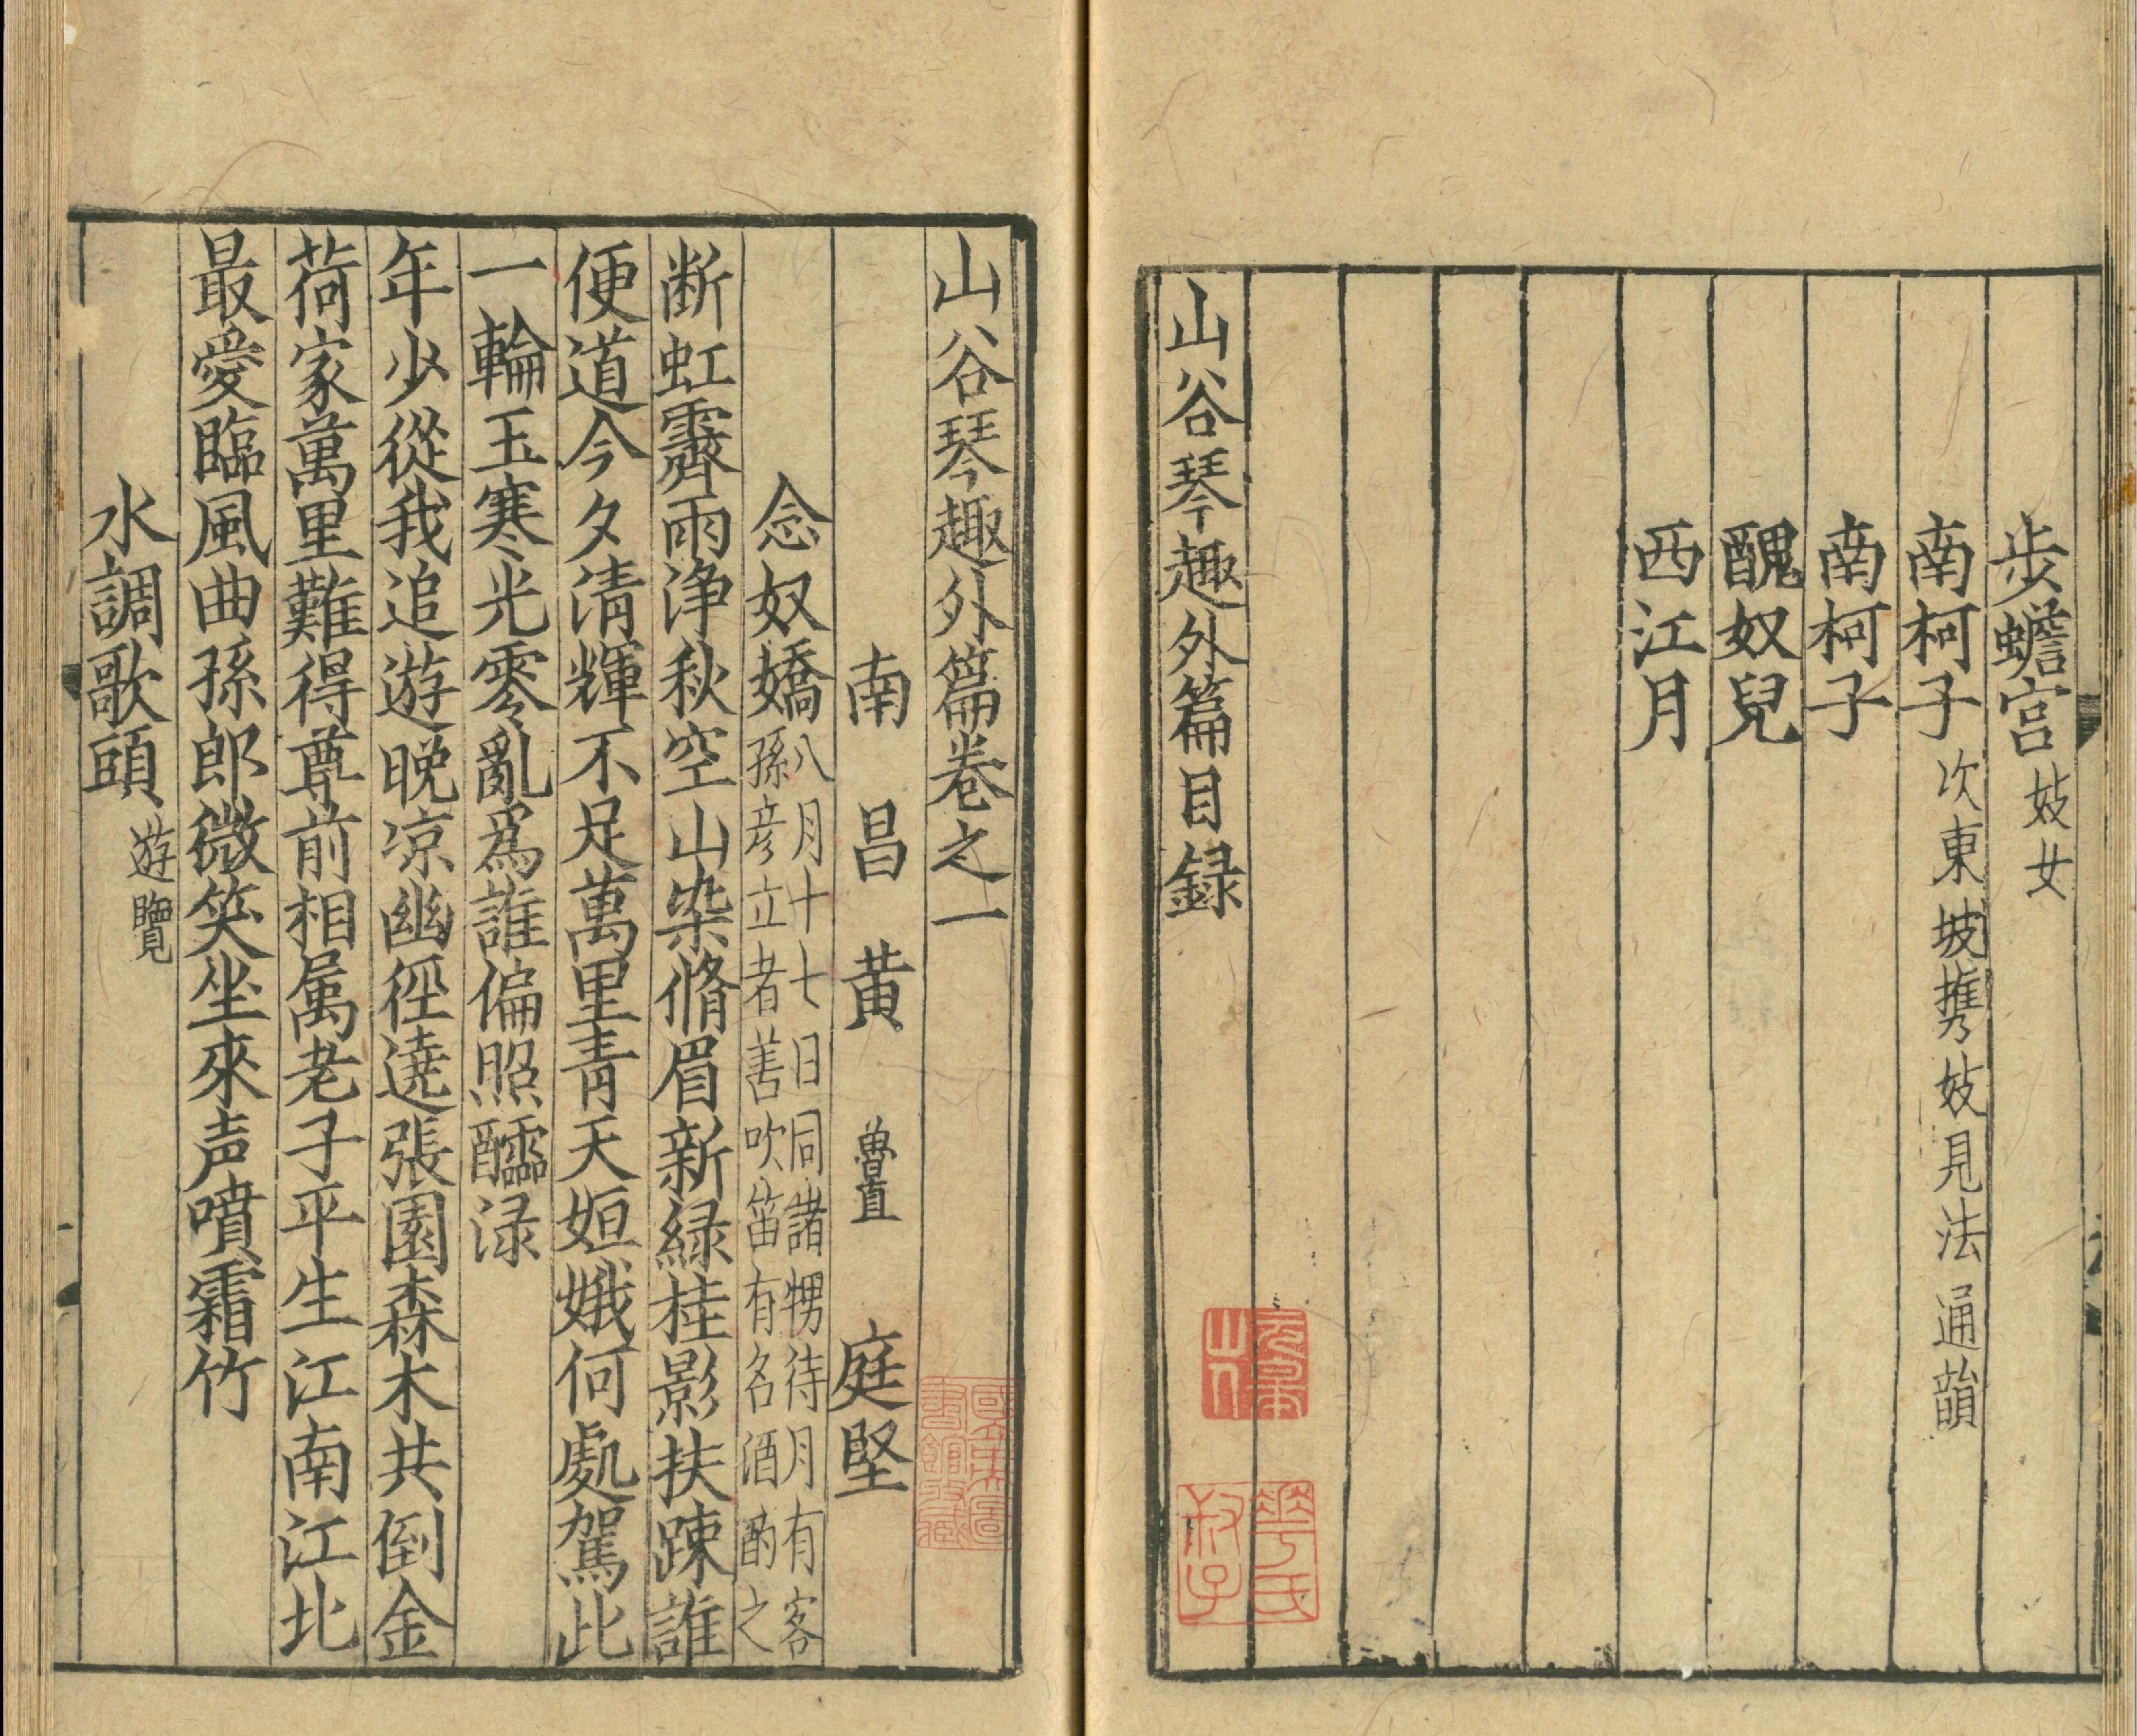 步蟾宮 妓女
南柯子 次東坡携妓見法通韻
南柯子
醜奴兒
西江月
山谷琴趣外篇目録
山谷琴趣外篇卷之一
南昌黄 魯直 庭堅
念奴嬌 八月十七日同諸甥待月有客
孫彦立者善吹笛有名酒酌之
断虹霽雨浄秋空山染脩眉新緑桂影扶踈誰
便道今夕清輝不足萬里青天姮娥何處駕此
一輪玉寒光零亂爲誰偏照醽渌
年少從我追遊晚凉幽徑遶張園森木共倒金
荷家萬里難得尊前相屬老子平生江南江北
最愛臨風曲孫郎微笑坐來声噴霜竹
水調歌頭 遊覽